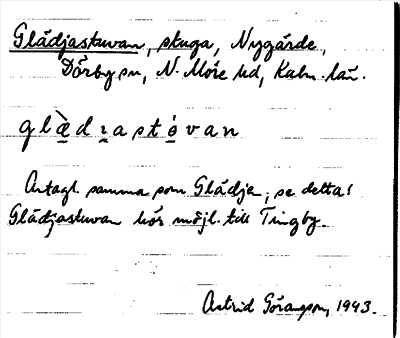 Glädjastuvan, stuga, Nygärde,
Dörby sn, N. Möre hd, Kalm. län.
glæ̀dıastóvan
Antagl. samma som Glädja, se detta!
Glädjastuvan hör möjl. till Tingby.
Astrid Göransson, 1943.